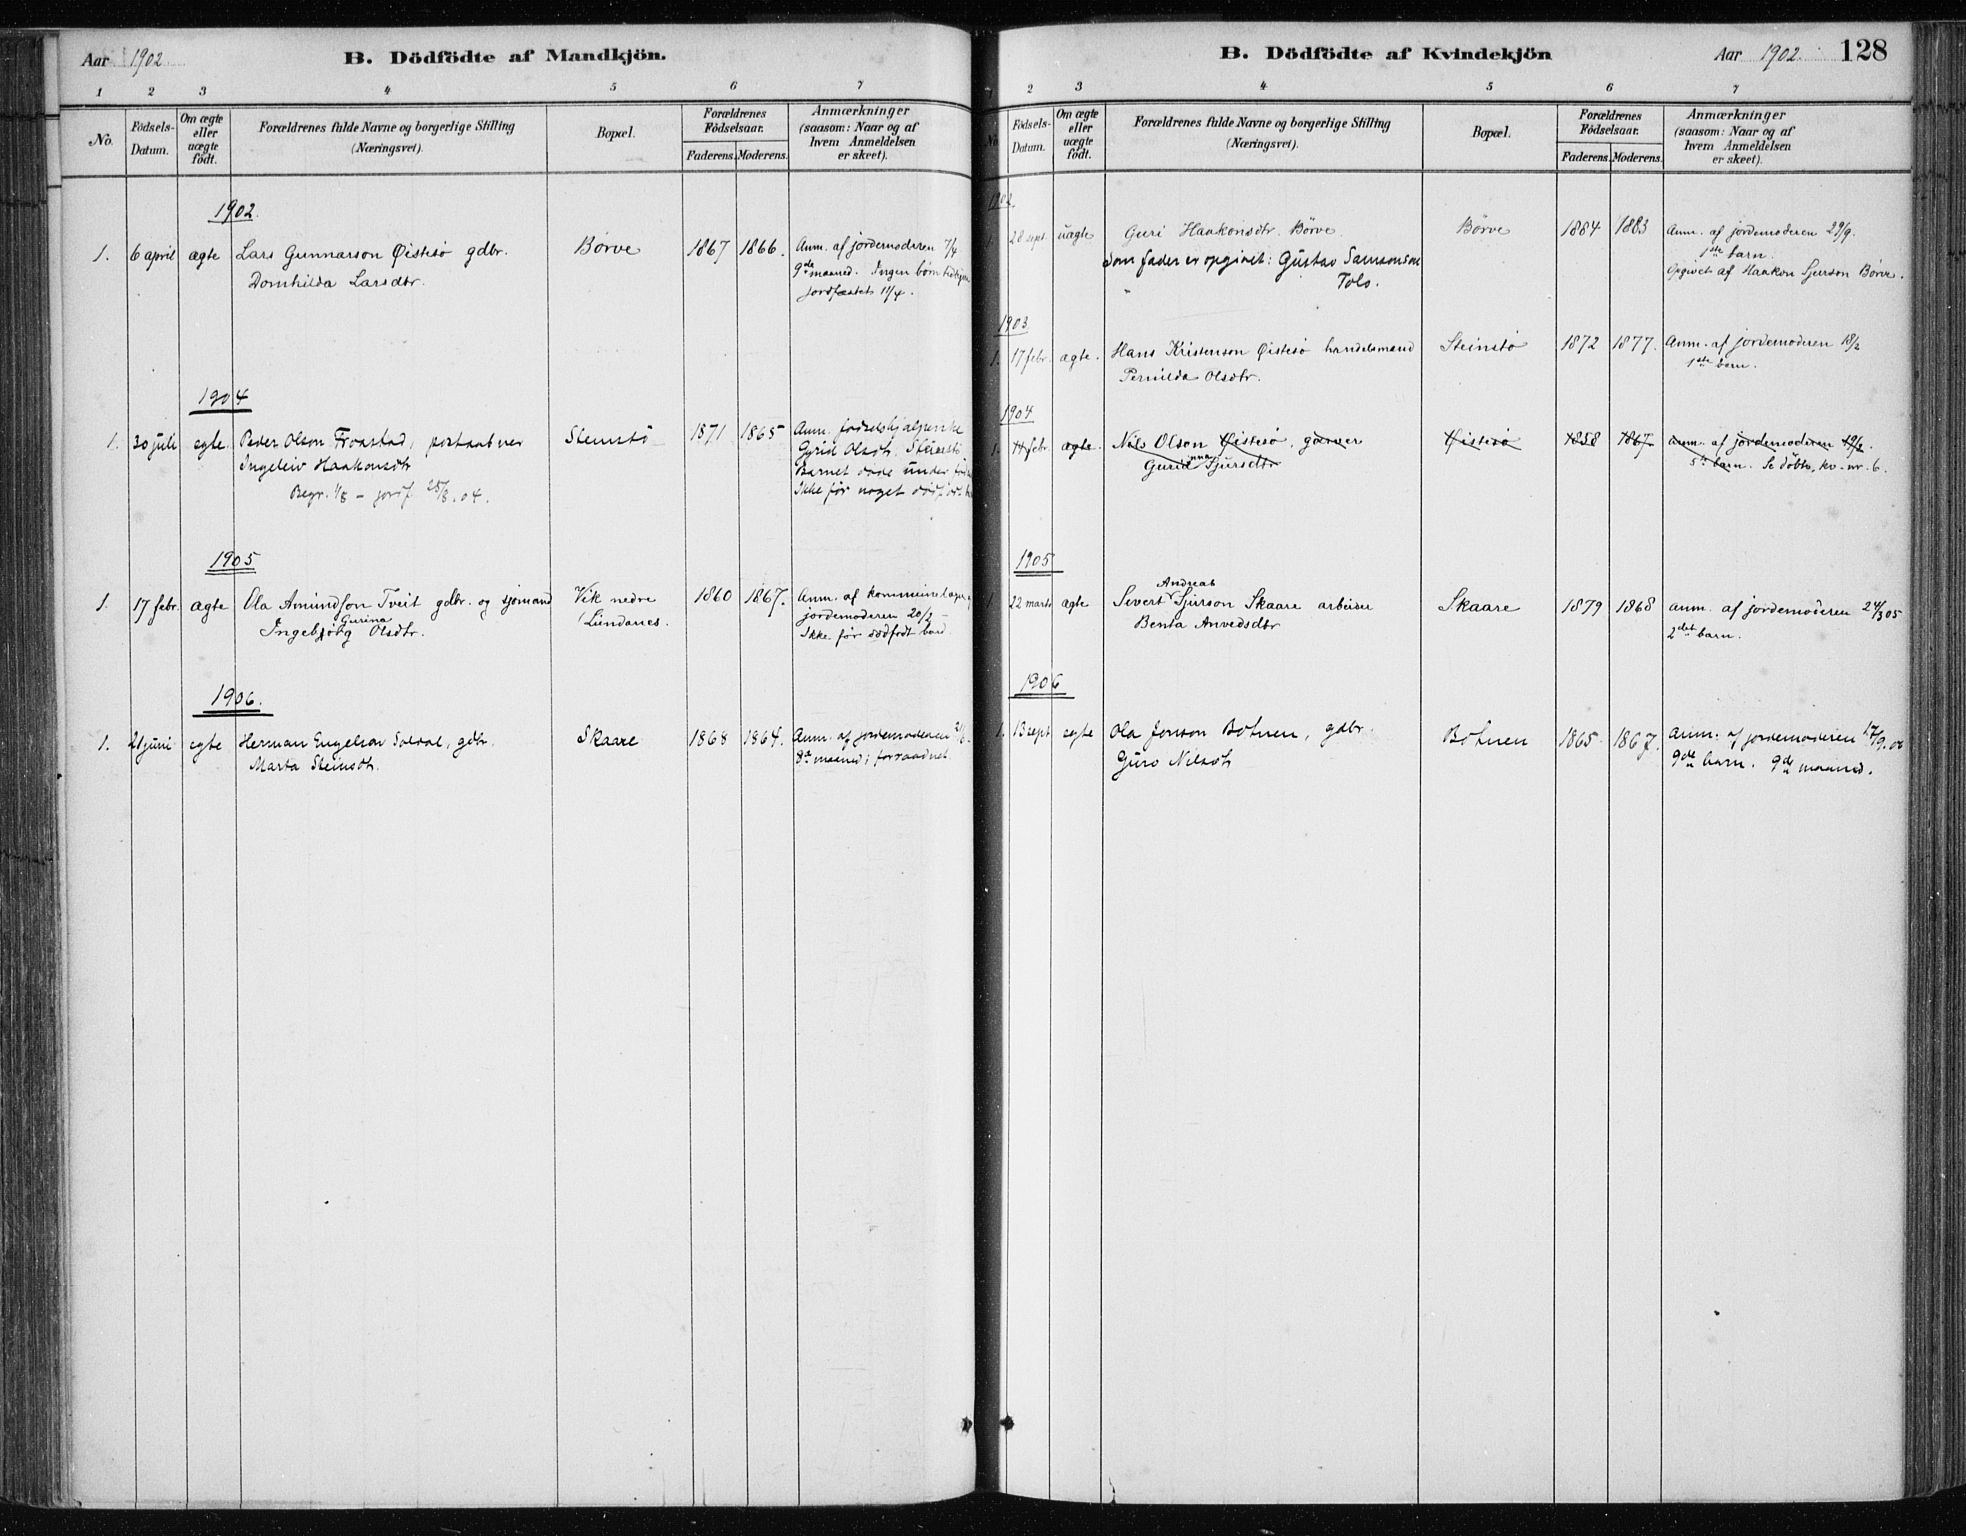 Aar 1902
B. Dödfödte af Mandkjön.
1 2 3 4 5 6 7
No.
Födsels-
Datum.
Om ægte
eller
uægte
födt.
Forældrenes fulde Navne og borgerlige Stilling
(Næringsvei).
Bopæl.
Forældrenes
Födselsaar.
Faderens. Moderens.
Anmærkninger
(saasom: Naar og af
hvem Anmeldelsen
er skeet).
1902.
1. 6 april ægte Lars Gunnarson Øistesø gdbr. Børve 1867 1866. Anm. af jordemoderen 7/4
Domhilda Larsdtr. 9de maaned. Ingen børn
jordfæstet 11/4.
1904
1. 30 juli egte Peder Olson Froastad, postaabner Steinstø 1871 1865 Anm. fødselshjælperske
Ingeleiv Haakonsdtr Gyrid Olsdtr. Steinstø
Barnet døde under
Begr. 1/8 – jordf. 25/8.04. Ikke før noget dødfødt
1905
1. 17 febr. ægte Ola Amundson Tveit gdbr. og sjømand Vik nedre 1860 1867. Anm. af
Gurina
Ingebjørg Olsdtr. Lundanes. jordemoderen 20/2
Ikke før dødfødt
1906.
1. 21 juni egte Herman Engelson Soldal, gdbr. Skaare 1868 1864. Anm. af jordemoderen
Marta Steinsdtr. 8de maaned; forraadnet
B. Dödfödte af Kvindekjön
Aar 1902. 128
1 2 3 4 5 6 7
No.
Födsels-
Datum.
Om ægte
eller
uægte
födt.
Forældrenes fulde Navne og borgerlige Stilling
(Næringsvei).
Bopæl.
Forældrenes
Födselsaar.
Faderens. Moderens.
Anmærkninger
(saasom: Naar og af
hvem Anmeldelsen
er skeet).
1902
1. 28 sept. uægte Guri Haakonsdtr. Børve. Børve 1884 1883 Anm. af jordemoderen 29/9.
Som fader er opgivet: Gustav Samsonson 1ste barn.
Tolo. Opgivet af Haakon Sjurson Børve.
1903
1. 17 febr. ægte. Hans Kristenson Øistesø handelsmand Steinstø 1872 1877. Anm. af jordemoderen 18/2
Pernilda Olsdtr. 1ste barn.
1904
1. 14 febr. ægte. Nils Olson Øistesø, garver Øistesø 1858 1867. Anm. af jordemoderen
Sjursdtr 5te barn. Se døbte, kv. nr. 6.
1905
Andreas
1. 22 marts ægte Sivert Sjurson Skaare arbeider Skaare 1879 1868 Anm. af jordemoderen 24/3 05
Benta Anvedsdtr 2det barn.
1906
1. 13 sept. egte Ola Jonson Botnen, gdbr. Botnen 1865 1867. Anm. af jordemoderen 17/9.06
Guro Nilsdtr 9de barn. 9de maaned.